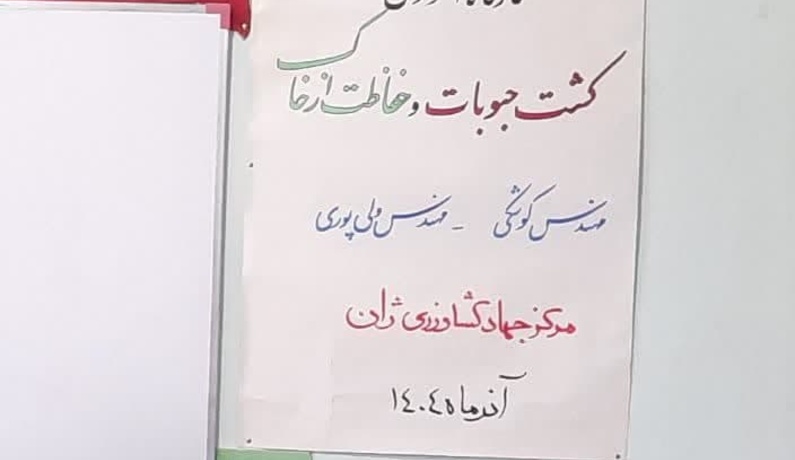 کشت حبوبات و حفاظت از خاک
مهندس کوشکی - مهندس ولی پوری
مرکز جهاد کشاورزی ژان
آذر ماه ۱۴۰۴